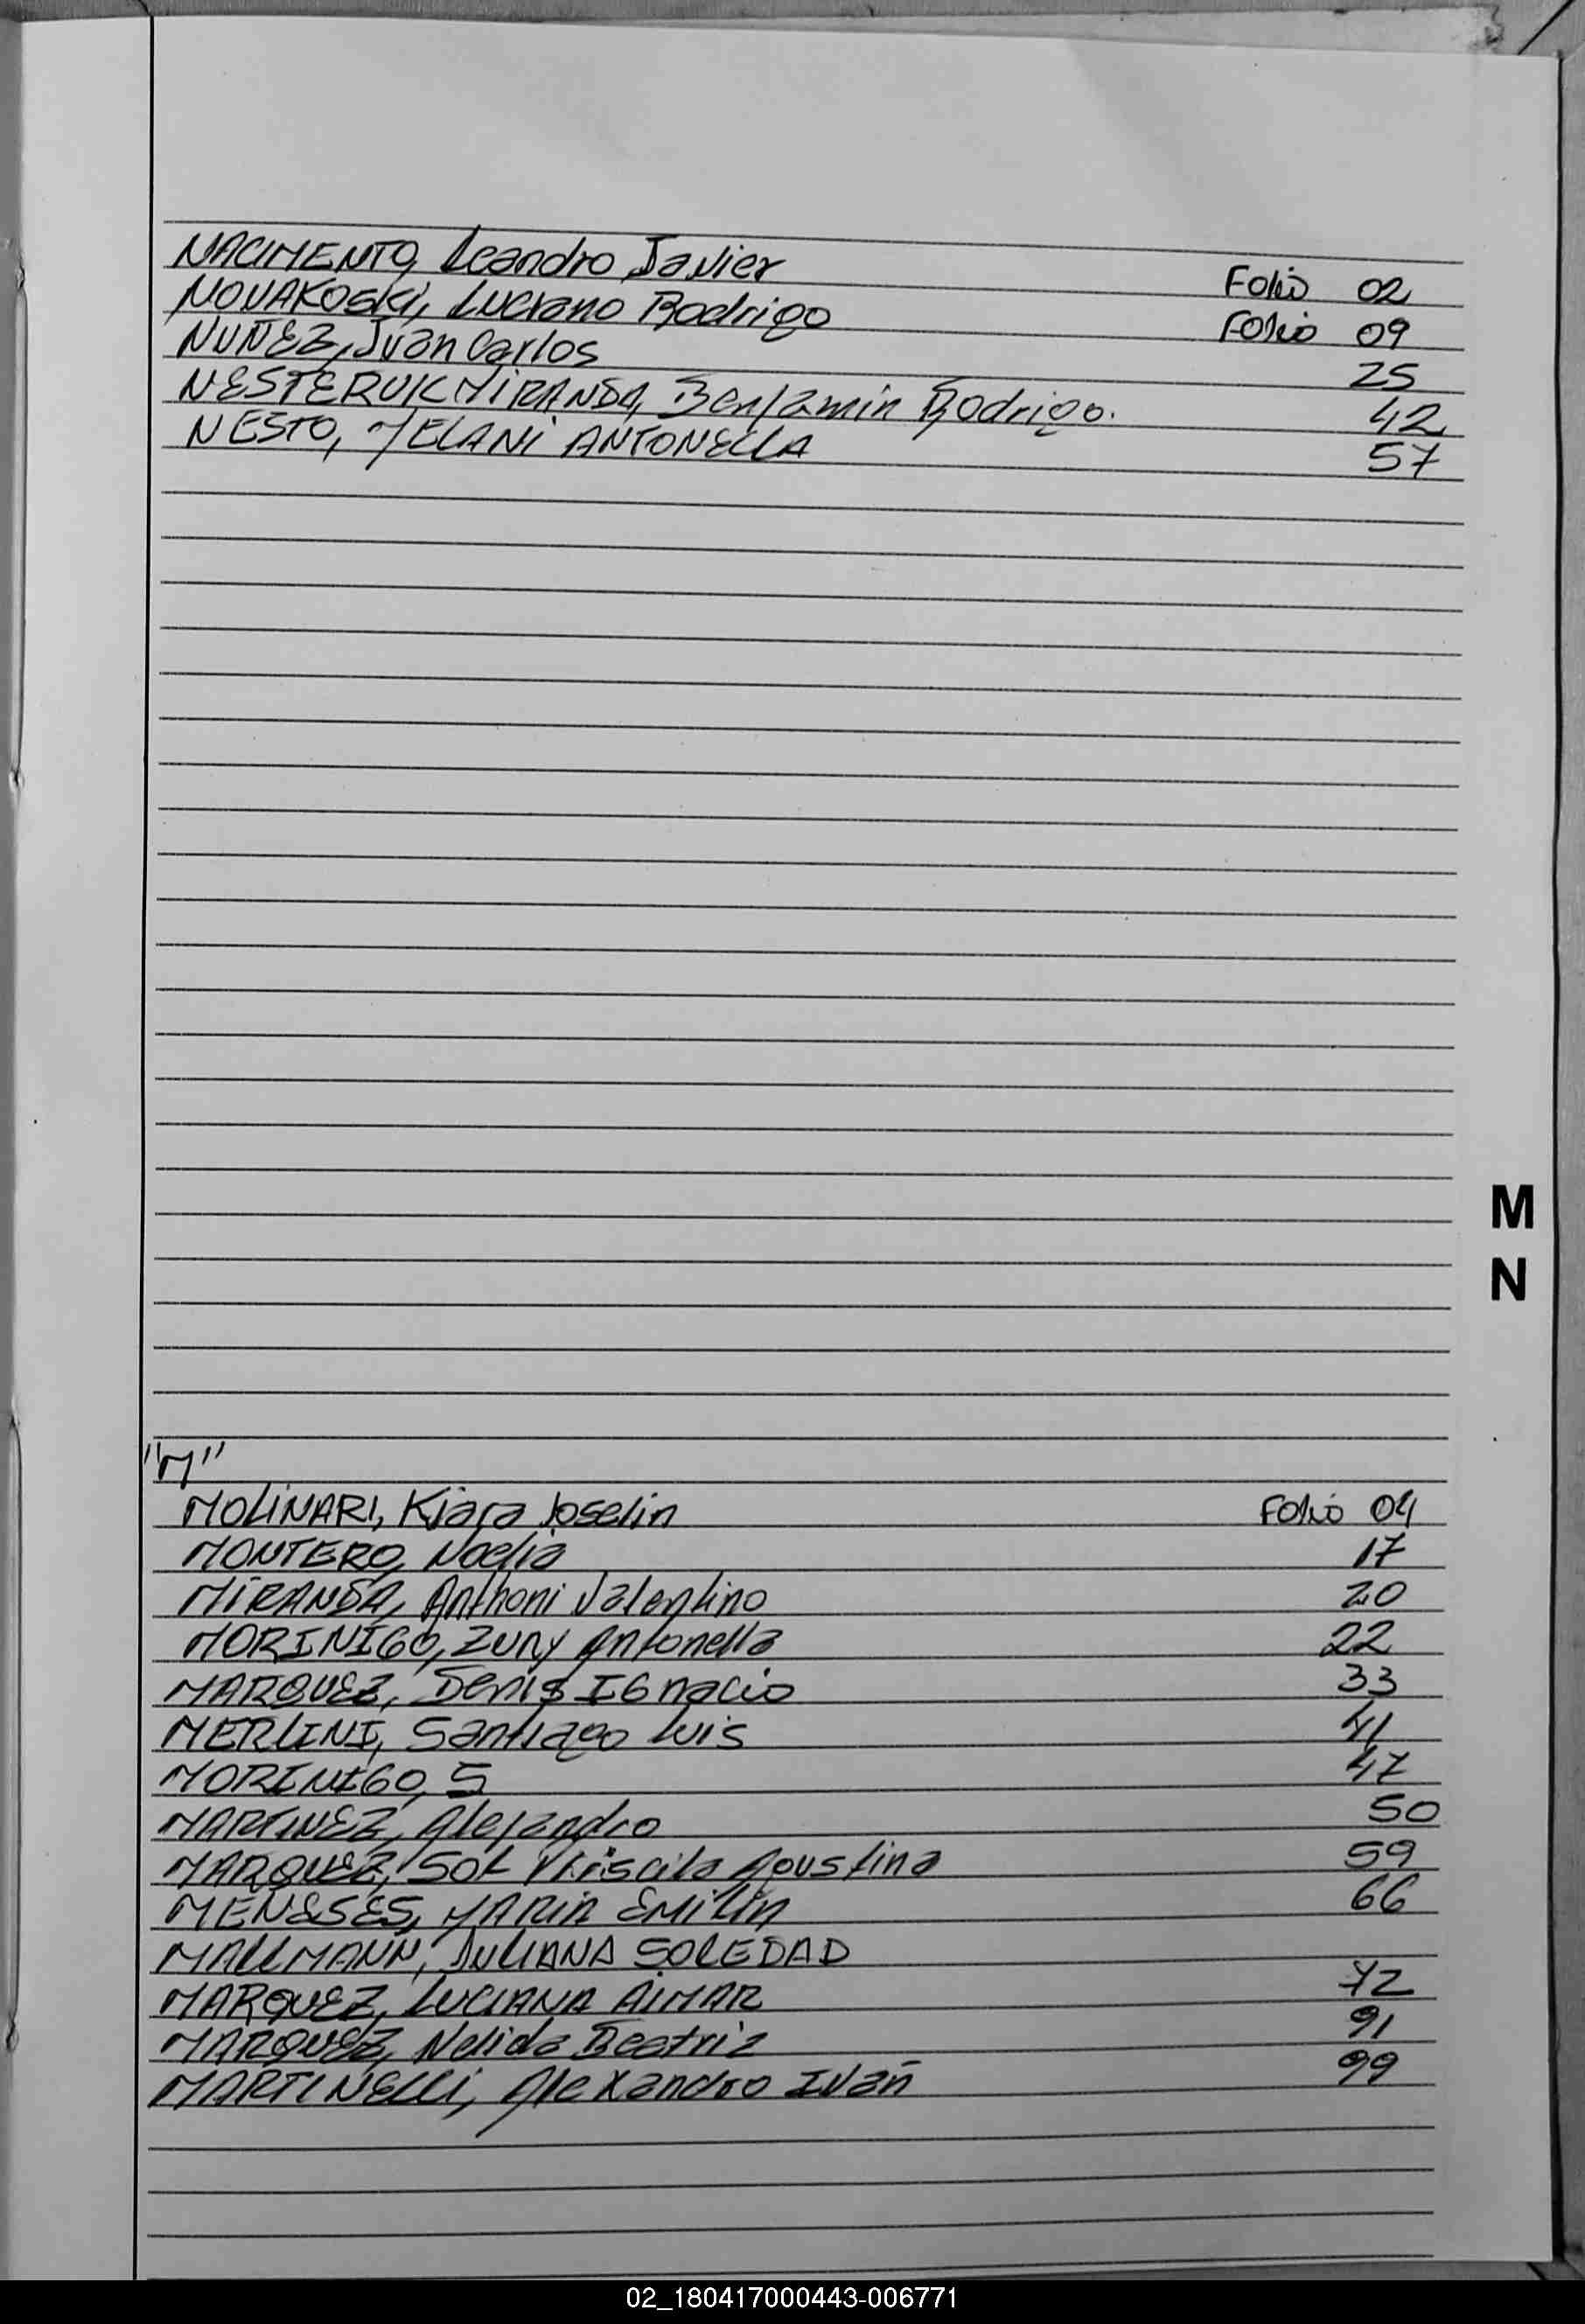 NACIMENTO, Leandro Javier Folio 02
NOVAKOSKI, Luciano Rodrigo Folio 09
NUÑEZ, Juan Carlos 25
NESTERUK MIRANDA, Benjamin Rodrigo. 42
NESTO, MELANI ANTONELLA 57
M
N
"M"
MOLINARI, Kiara Joselin Folio 04
MONTERO, Noelia 17
MIRANDA, Anthoni Valentino 20
MORINIGO, Zuny Antonella 22
MARQUEZ, Denis IGnacio 33
MERLINI, Santiago Luis 41
MORINIGO, S 47
MARTINEZ, Alejandro 50
MARQUEZ, SOL Priscila Agustina 59
MENESES, MARIA EMILIA 66
MALLMANN, JULIANA SOLEDAD
MARQUEZ, LUCIANA AIMAR 72
MARQUEZ, Nelida Beatriz 91
MARTINELLI, Alexandro Iván 99
02_180417000443-006771